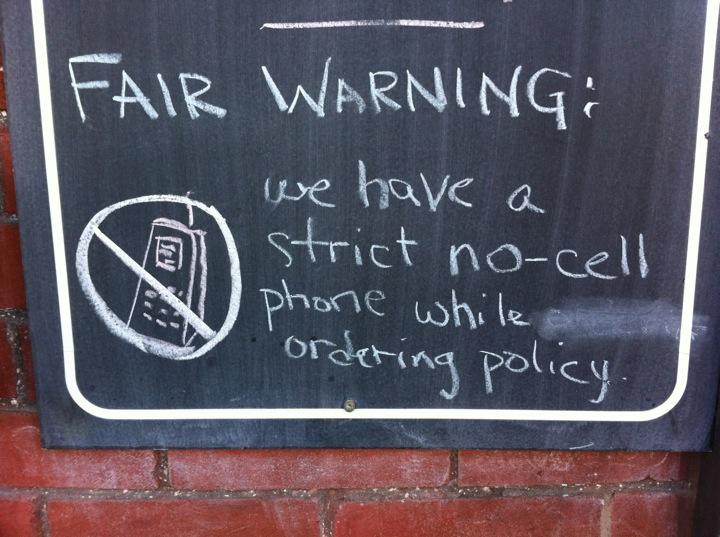 FAIR WARNING:
we have a
strict no-cell
phone while
ordering policy.